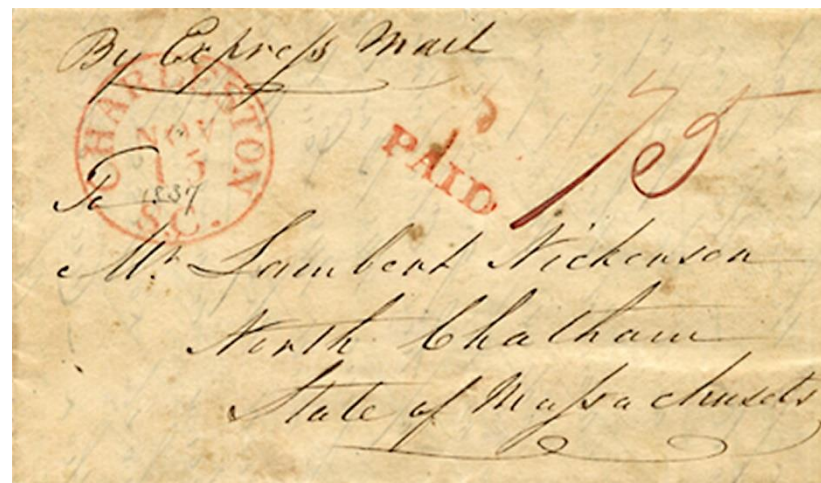 By Express Mail
CHARLESTON
NOV
15
S.C.
1837
PAID
75
To
Mr. Lambert Nickerson
North Chatham
State of Massachusets